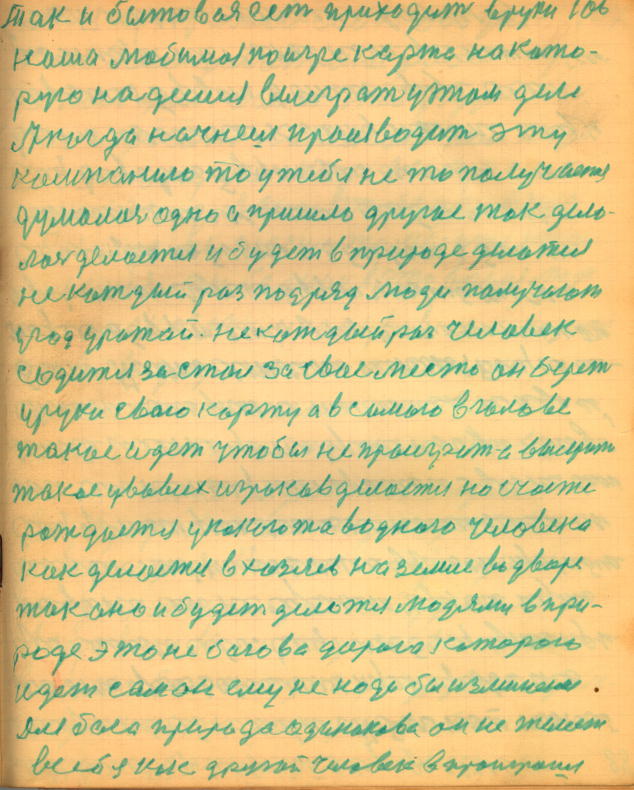 так и бытовая сет приходит в руки
наша любимая по игре карта на кото-
рую надешся выиграт у этом деле
А когда начнеш производит эту
компанию то у тебя не то получается
думалося одно а пришло другое так дело-
лося делается и будет в природе делатся
не каждый раз подряд люди получают
урожай. не каждый раз человек
садится за стол за свое место он берет
у руки свою карту а в самого в голове
такое идет чтобы не проиграт а выиграт
такое у всех игроков делается но счасте
рождается у какогота водного человека
как делается в хозяев на земле во дворе
так оно и будет делатся людями в при-
роде это не богова дорога которого
идет сам он ему не надо бы
Для бога природа одинакова он не желает
в себя как другой человек в проигрыш